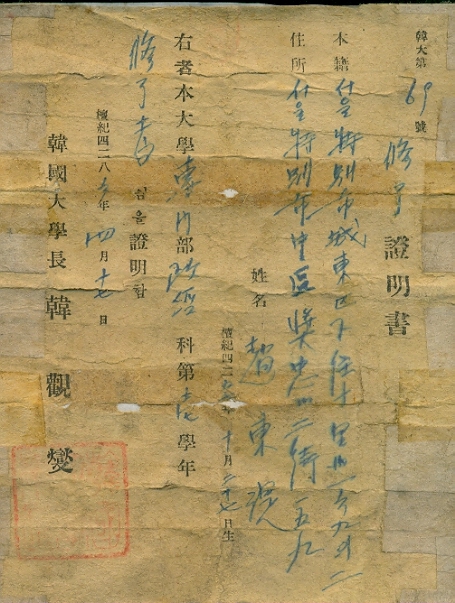 韓大第 69 號
修了 證明書
本籍 서울特別市城東區下往十里
住所 서울特別市中區奬忠洞二街五九
姓名 趙東
檀紀四二 年 十月二十七日生
右者本大學專門部政經科第 學年
修了者임을證明함
檀紀四二八 年 四月十七日
韓國大學長 韓觀燮